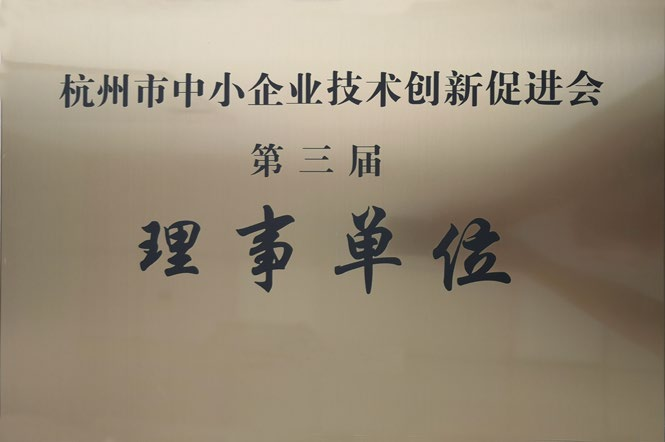 杭州市中小企业技术创新促进会
第三届
理事单位